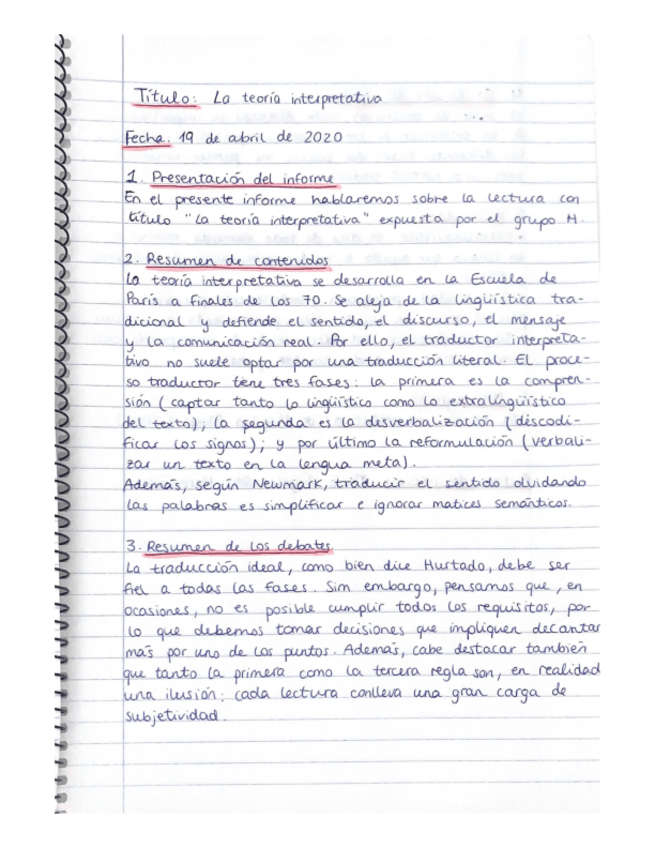 Título: La teoría interpretativa
Fecha: 19 de abril de 2020
1. Presentación del informe
En el presente informe hablaremos sobre la lectura con
título "La teoría interpretativa" expuesta por el grupo M.
2. Resumen de contenidos
La teoría interpretativa se desarrolla en la Escuela de
París a finales de los 70. Se aleja de la lingüística tra-
dicional y defiende el sentido, el discurso, el mensaje
y la comunicación real. Por ello, el traductor interpreta-
tivo no suele optar por una traducción literal. El proce-
so traductor tiene tres fases: la primera es la compren-
sión (captar tanto lo lingüístico como lo extralingüístico
del texto); la segunda es la desverbalización (descodi-
ficar los signos); y por último la reformulación (verbali-
zar un texto en la lengua meta).
Además, según Newmark, traducir el sentido olvidando
las palabras es simplificar e ignorar matices semánticos.
3. Resumen de los debates
La traducción ideal, como bien dice Hurtado, debe ser
fiel a todas las fases. Sim embargo, pensamos que, en
ocasiones, no es posible cumplir todos los requisitos, por
lo que debemos tomar decisiones que impliquen decantar
más por uno de los puntos. Además, cabe destacar también
que tanto la primera como la tercera regla son, en realidad
una ilusión: cada lectura conlleva una gran carga de
subjetividad.